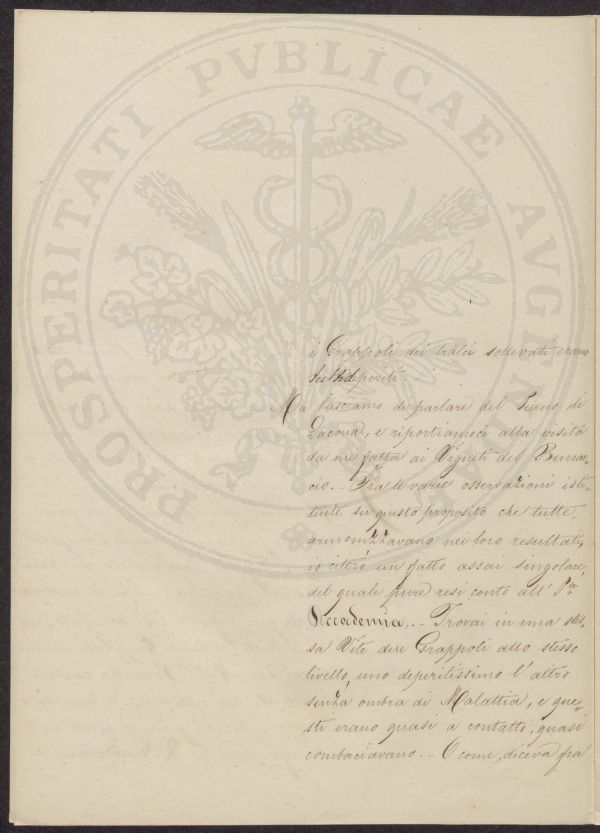 PROSPERITATI PVBLICAE AVGENDAE
i Grappoli dei tralci sollevati erano
tutti deperiti. –
Ma lasciamo di parlare del Piano di
Lacona, e riportiamoci alla visita
da me fatta ai Vigneti del Burrac-
cio. – Fra le varie osservazioni isti-
tuite su questo proposito che tutte
armonizzavano nei loro resultati,
io citerò un fatto assai singolare,
del quale pure resi conto all' I.a
Accademia. – Trovai in una stes-
sa Vite due Grappoli allo stesso
livello, uno deperitissimo l' altro
senza ombra di Malattia, e que-
sti erano quasi a contatto, quasi
combaciavano. – O come, diceva fra